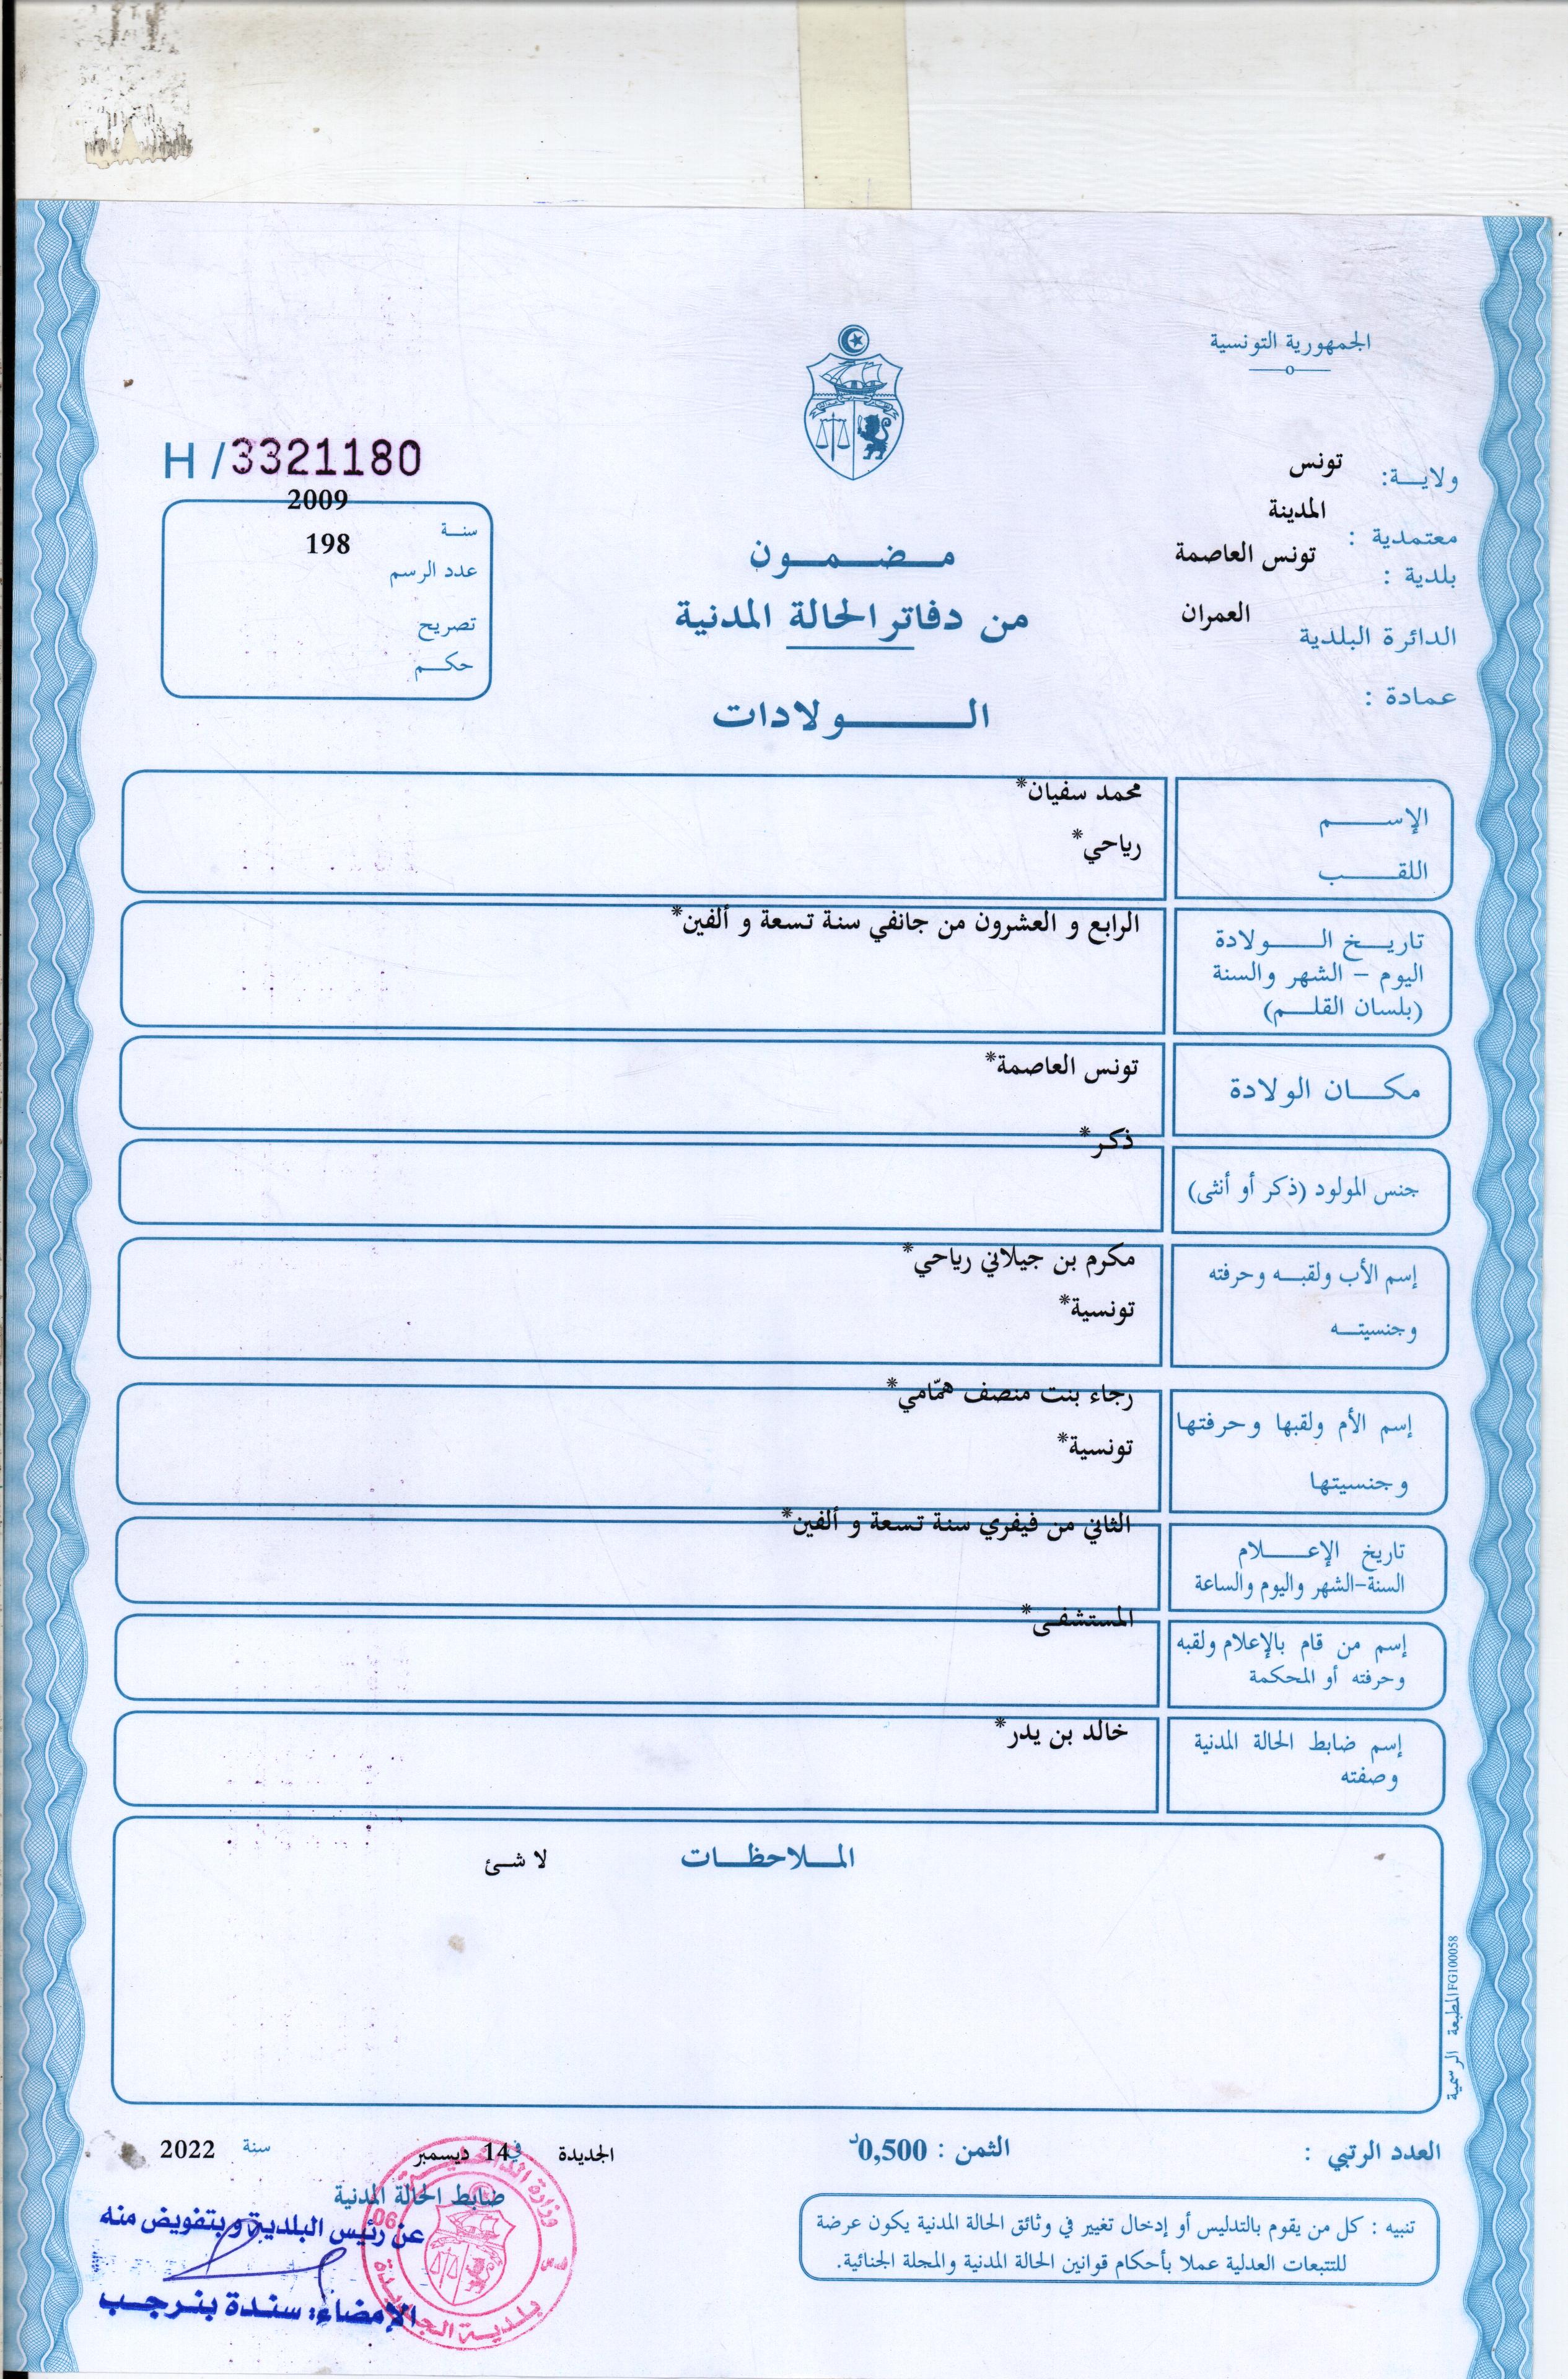 الجمهورية التونسية
H / 3321180
ولايـــة: تونس
معتمدية : المدينة
بلدية : تونس العاصمة
الدائرة البلدية العمران
عمادة :
سنــة 2009
عدد الرسم 198
تصريح
حكــم
مـــضـــمـــون
من دفاتر الحالة المدنية
الـــــــولادات
الإســـــم محمد سفيان*
اللقـــــب رياحي*
تاريــــخ الــــــولادة الرابع و العشرون من جانفي سنة تسعة و ألفين*
اليوم – الشهر والسنة
(بلسان القلـــم)
مكـــان الولادة تونس العاصمة*
جنس المولود (ذكر أو أنثى) ذكر*
إسم الأب ولقبـــه وحرفته مكرم بن جيلاني رياحي*
وجنسيتـــه تونسية*
إسم الأم ولقبها وحرفتها رجاء بنت منصف همّامي*
وجنسيتها تونسية*
تاريخ الإعــــــلام الثاني من فيفري سنة تسعة و ألفين*
السنة-الشهر واليوم والساعة
إسم من قام بالإعلام ولقبه المستشفى*
وحرفته أو المحكمة
إسم ضابط الحالة المدنية خالد بن يدر*
وصفته
المــلاحظــات لا شئ
المطبعة الرسمية FG100058
العدد الرتبي :
الثمن : 0,500د
الجديدة في 14 ديسمبر سنة 2022
ضابط الحالة المدنية
عن رئيس البلدية وبتفويض منه
الإمضاء: سندة بنرجب
وزارة الداخلية
06
بلدية الجديدة
تنبيه : كل من يقوم بالتدليس أو إدخال تغيير في وثائق الحالة المدنية يكون عرضة
للتتبعات العدلية عملا بأحكام قوانين الحالة المدنية والمجلة الجنائية.